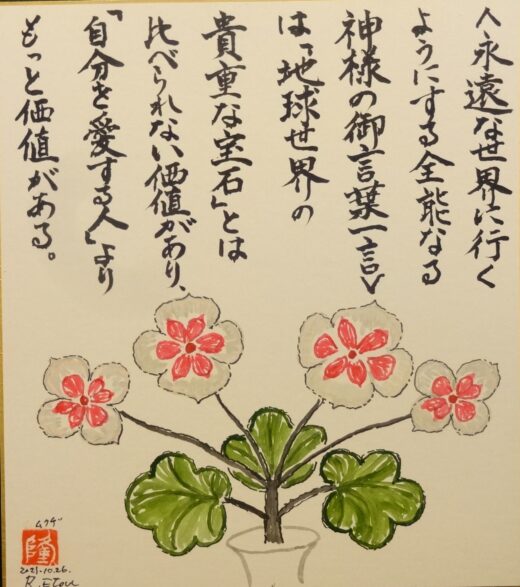 人永遠な世界に行く
ようにする全能なる
神様の御言葉一言
は「地球世界の
貴重な宝石」とは
比べられない価値があり、
「自分を愛する人」より
もっと価値がある。
ムクゲ
隆
2021.10.26.
R.Etou